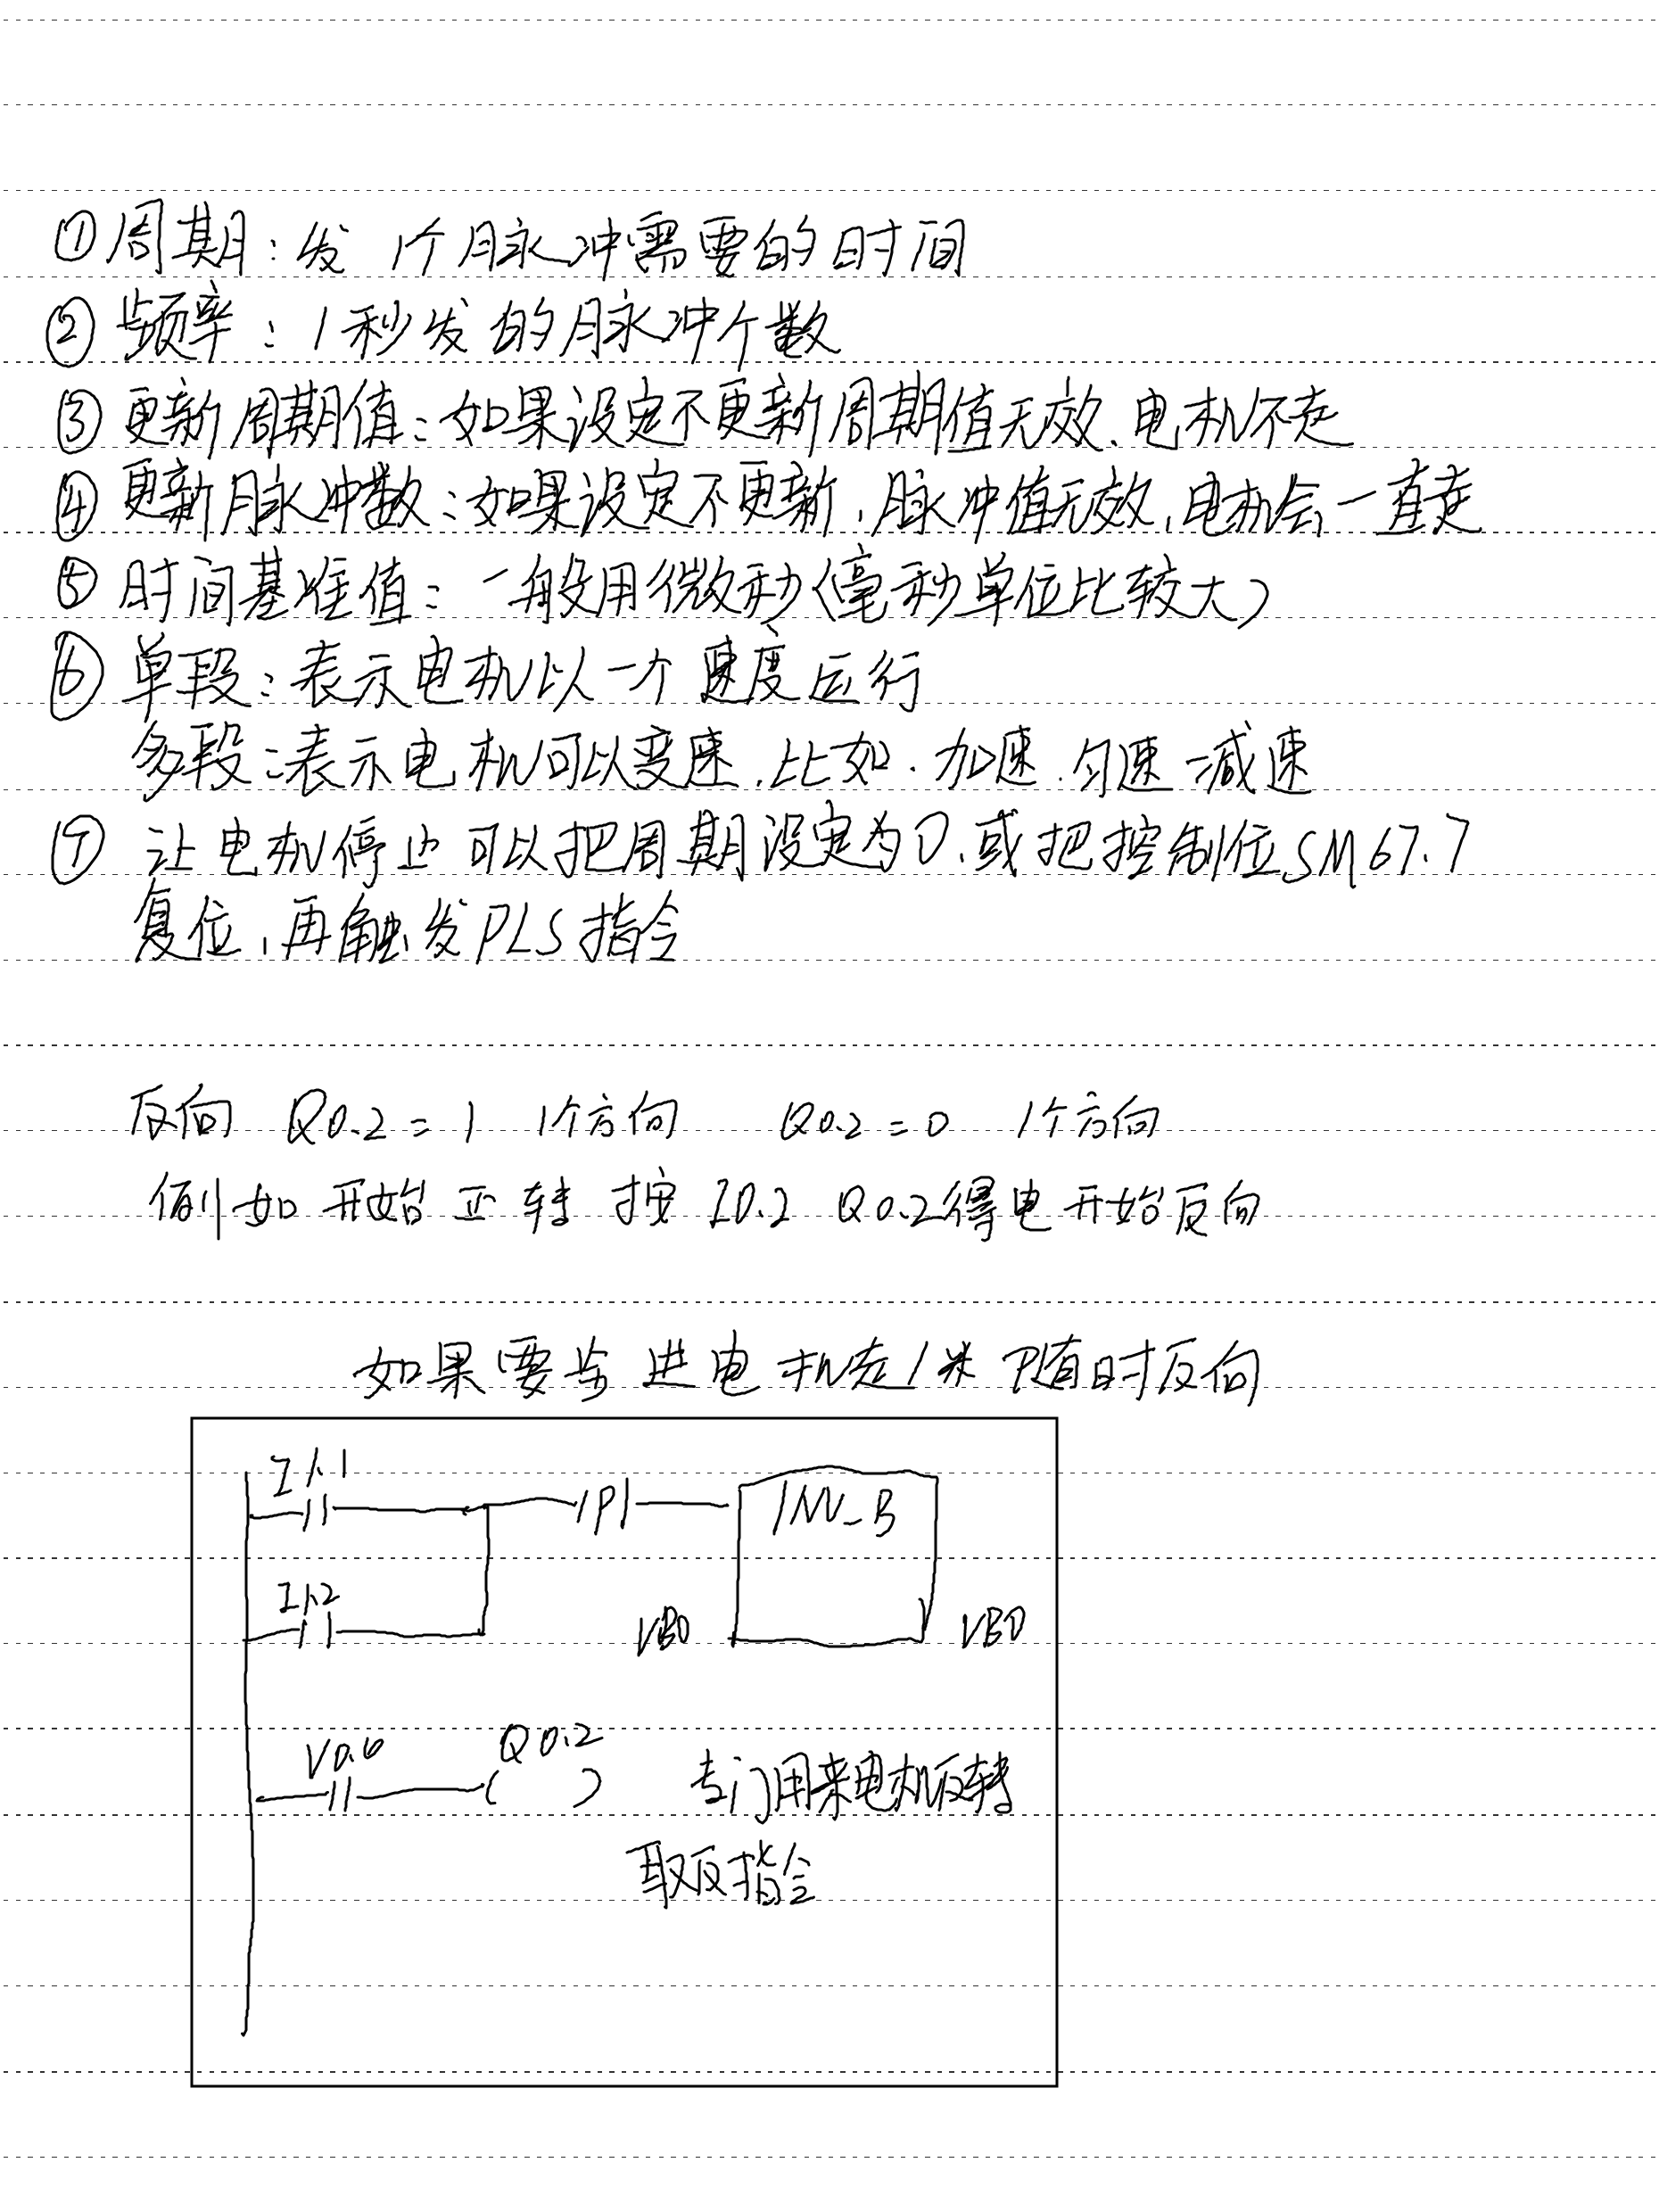 ①周期：发 1个脉冲需要的时间
②频率：1秒发的脉冲个数
③更新周期值：如果设定不更新周期值无效、电机不走
④更新脉冲数：如果设定不更新，脉冲值无效，电机会一直走
⑤时间基准值：一般用微秒（毫秒单位比较大）
⑥单段：表示电机以一个速度运行
多段：表示电机可以变速，比如．加速．匀速 减速
⑦让电机停止可以把周期设定为0、或把控制位SM67.7
复位，再触发PLS指令
反向 Q0.2=1 1个方向 Q0.2=0 1个方向
例如开始正转 按 I0.2 Q0.2得电开始反向
如果要步进电机走1米 随时反向
I1.1
|P| INV_B
I1.2
VB0 VB0
V0.0 Q0.2
专门用来电机反转
取反指令